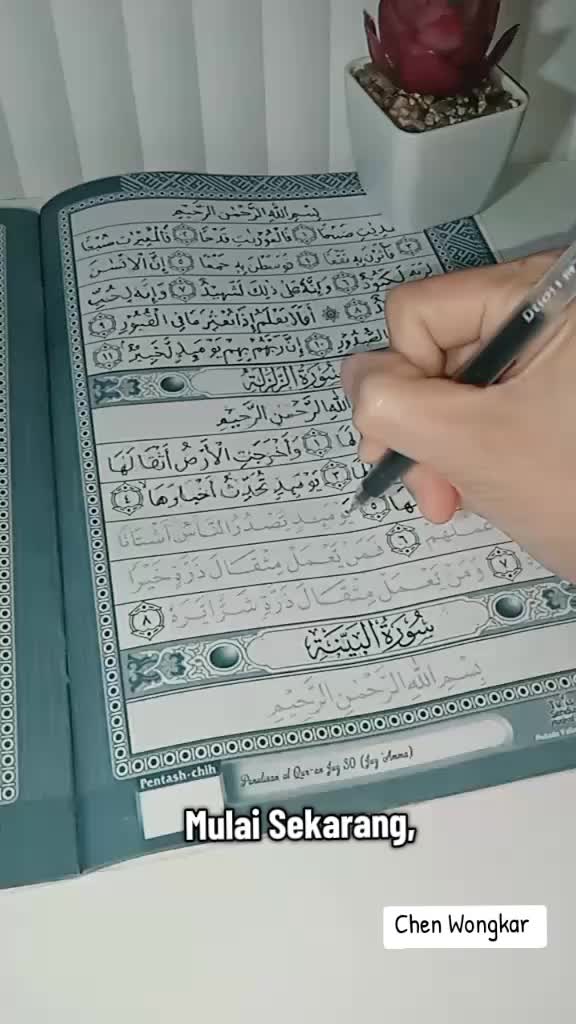 بِسْمِ اللّٰهِ الرَّحْمٰنِ الرَّحِيْمِ
ضَبْحًا ۝١ فَالْمُوْرِيٰتِ قَدْحًا ۝٢ فَالْمُغِيْرٰتِ صُبْحًا
۝٣ فَاَثَرْنَ بِهٖ نَقْعًا ۝٤ فَوَسَطْنَ بِهٖ جَمْعًا ۝٥ اِنَّ الْاِنْسَانَ
لِرَبِّهٖ لَكَنُوْدٌ ۝٦ وَاِنَّهٗ عَلٰى ذٰلِكَ لَشَهِيْدٌ ۝٧ وَاِنَّهٗ لِحُبِّ
۝٨ ۞ اَفَلَا يَعْلَمُ اِذَا بُعْثِرَ مَا فِى الْقُبُوْرِ ۝٩
الصُّدُوْرِ ۝١٠ اِنَّ رَبَّهُمْ بِهِمْ يَوْمَىِٕذٍ لَّخَبِيْرٌ ۝١١
سُوْرَةُ الزَّلْزَلَةِ
اللّٰهِ الرَّحْمٰنِ الرَّحِيْمِ
۝١ وَاَخْرَجَتِ الْاَرْضُ اَثْقَالَهَا
۝٣ يَوْمَىِٕذٍ تُحَدِّثُ اَخْبَارَهَا ۝٤
۝٥ يَوْمَىِٕذٍ يَّصْدُرُ النَّاسُ اَشْتَاتًا
۝٦ فَمَنْ يَّعْمَلْ مِثْقَالَ ذَرَّةٍ خَيْرًا
۝٧ وَمَنْ يَّعْمَلْ مِثْقَالَ ذَرَّةٍ شَرًّا يَّرَهٗ ۝٨
سُوْرَةُ الْبَيِّنَةِ
بِسْمِ اللّٰهِ الرَّحْمٰنِ الرَّحِيْمِ
Pentash-chih
Penulisan al Qur-an Juz 30 (Juz 'Amma)
Mulai Sekarang,
Chen Wongkar